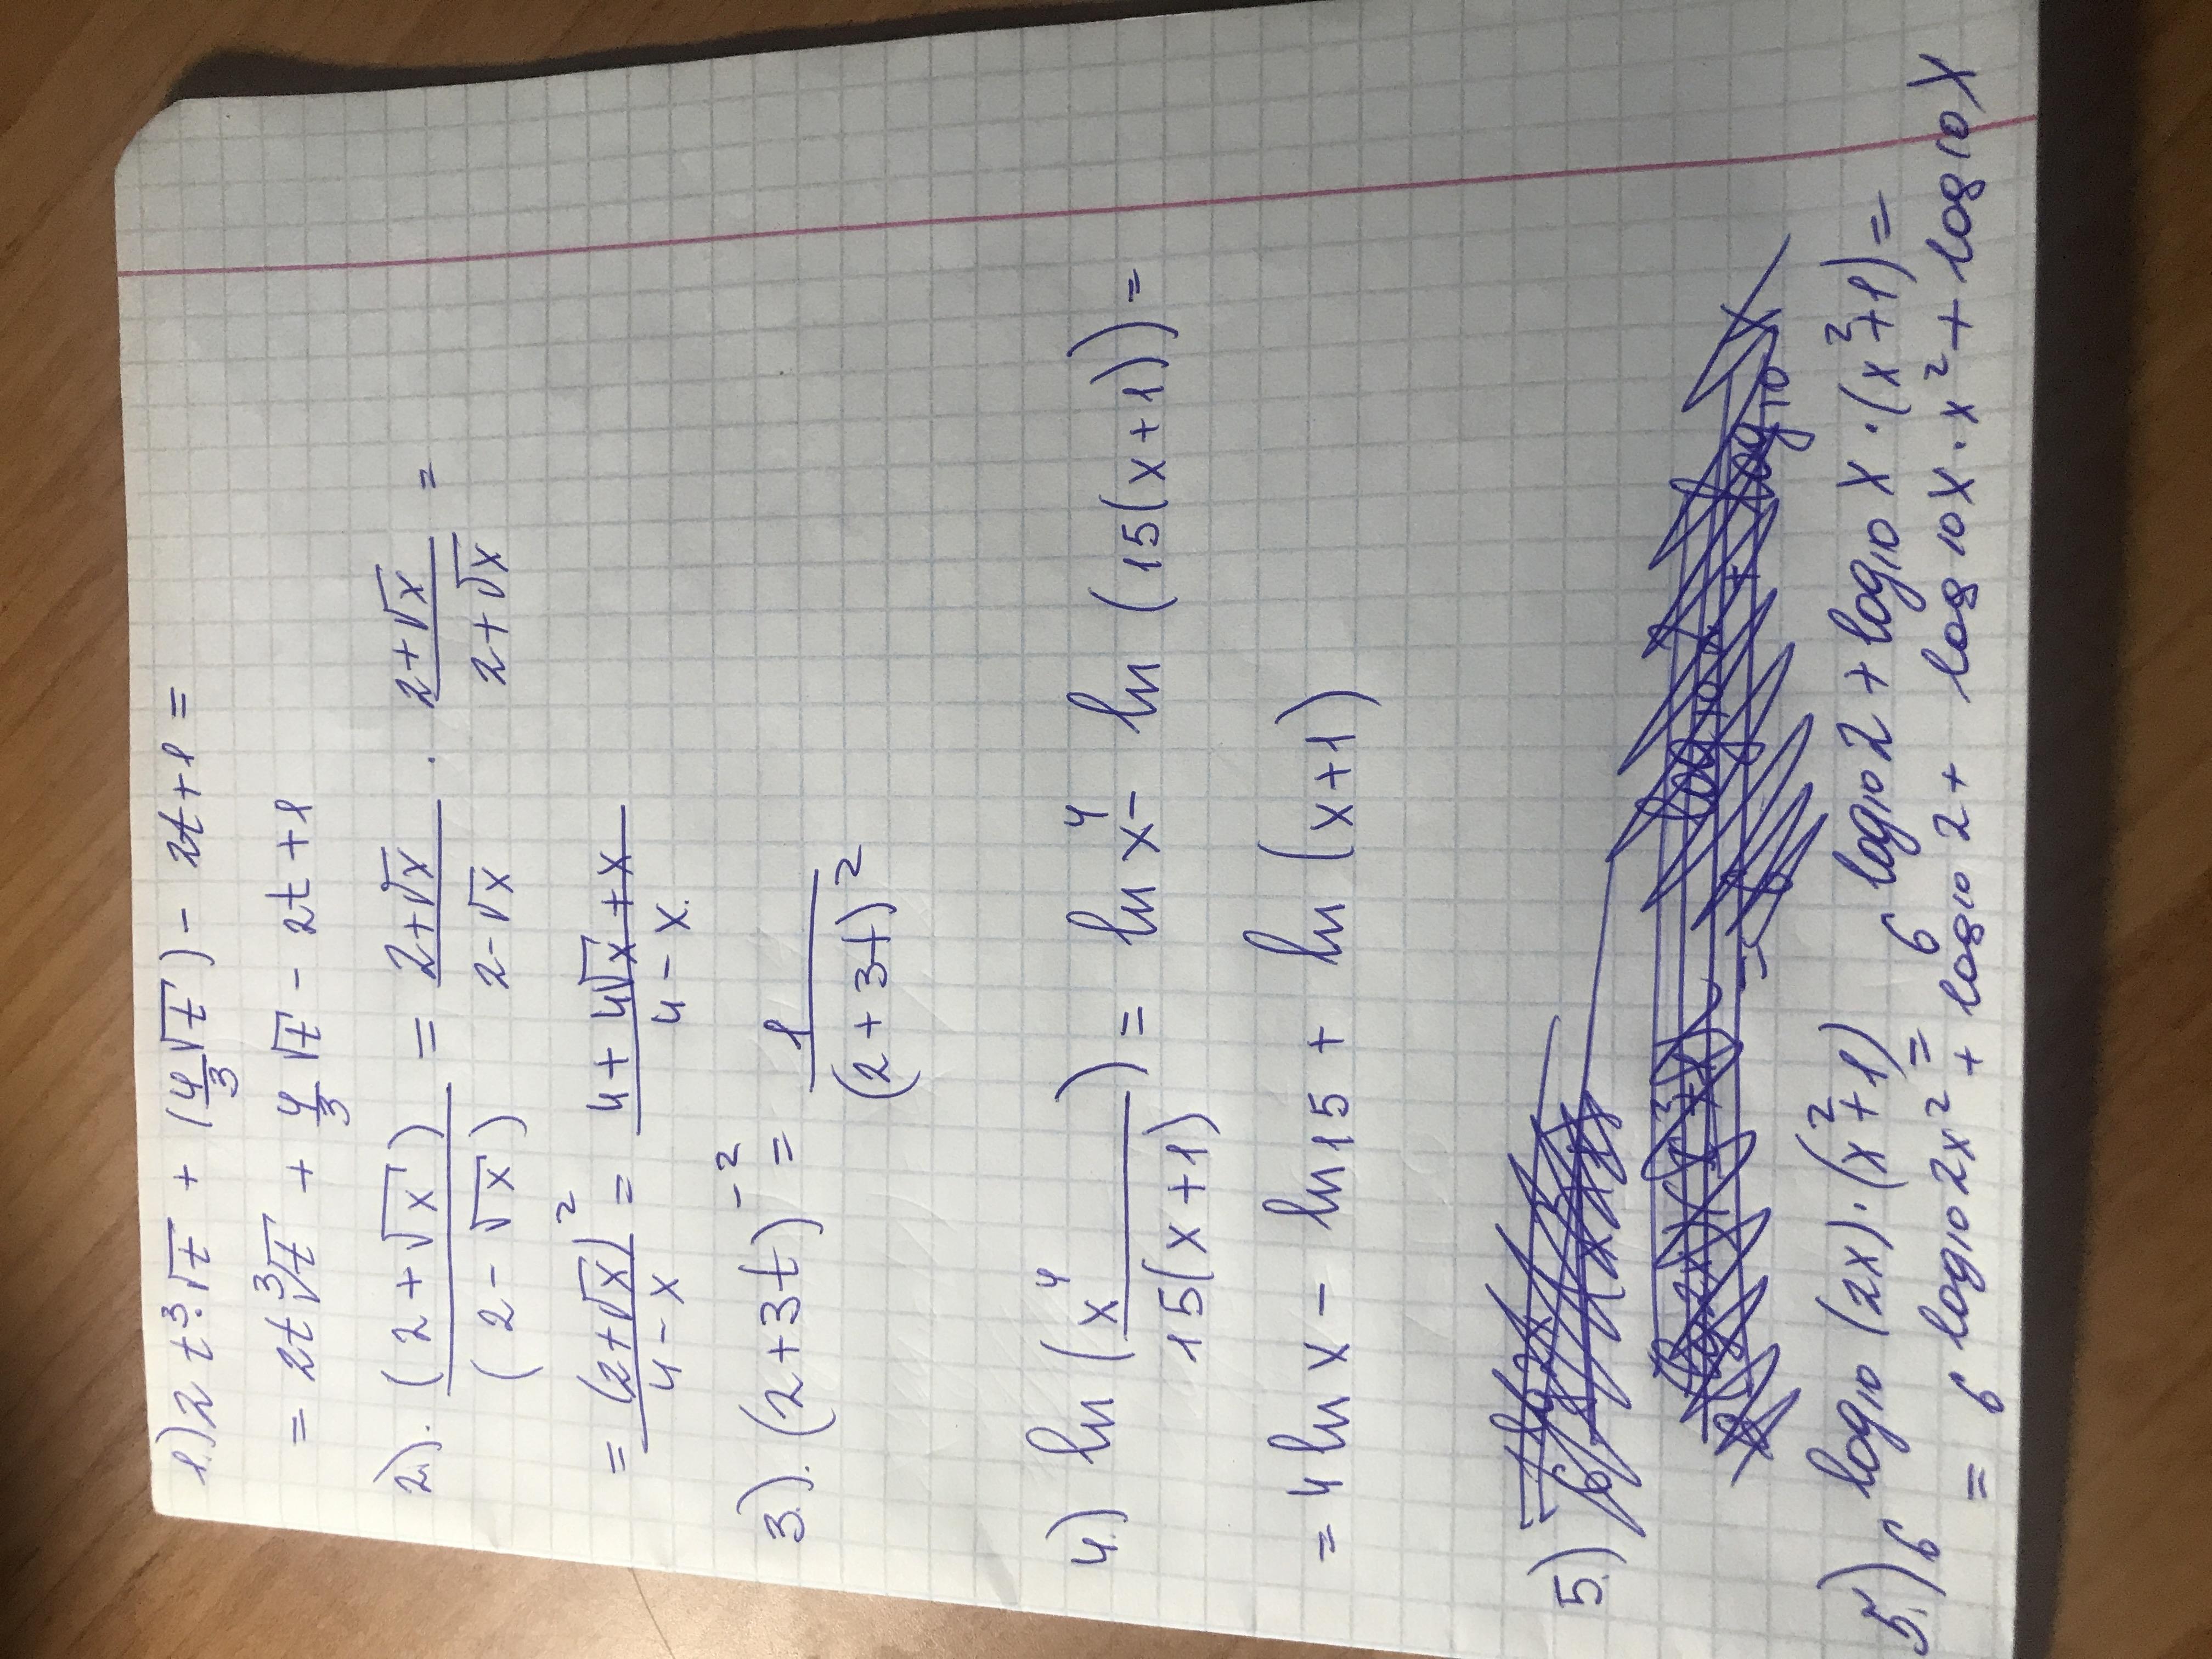 1.) 2t³·√t + (4/3 √t) - 2t + 1 =
= 2t³√t + 4/3 √t - 2t + 1
2.). (2+√x)/(2-√x) = (2+√x)/(2-√x) · (2+√x)/(2+√x) =
= (2+√x)²/(4-x) = (4+4√x+x)/(4-x)
3.). (2+3t)⁻² = 1/(2+3t)²
4.) ln (x⁴/15(x+1)) = ln x⁴ - ln (15(x+1)) =
= 4 ln x - ln 15 + ln (x+1)
5.)
5.) 6 log₁₀ (2x)·(x²+1) 6 log₁₀ 2 + log₁₀ x · (x³+1) =
6 log₁₀ 2x² =
= 6 + log₁₀ 2 + log₁₀ x · x² + log₁₀ x